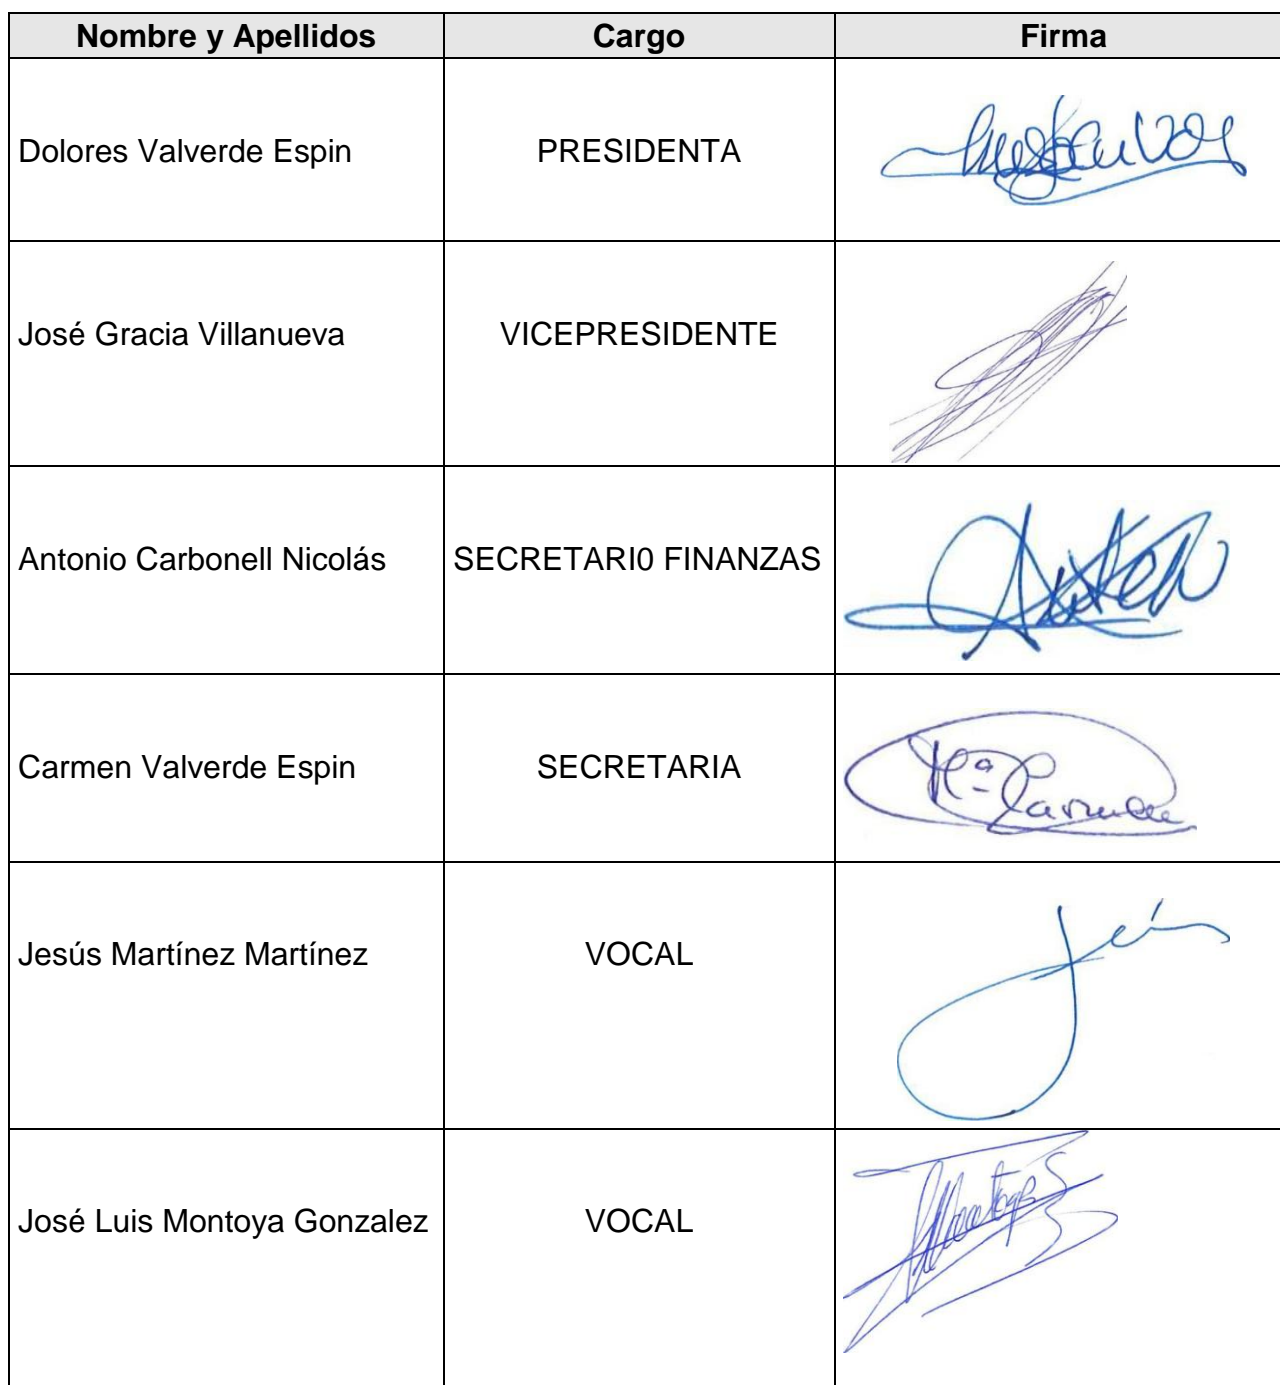 Nombre y Apellidos Cargo Firma
Dolores Valverde Espin PRESIDENTA
José Gracia Villanueva VICEPRESIDENTE
Antonio Carbonell Nicolás SECRETARI0 FINANZAS
Carmen Valverde Espin SECRETARIA Mª Carmen
Jesús Martínez Martínez VOCAL
José Luis Montoya Gonzalez VOCAL